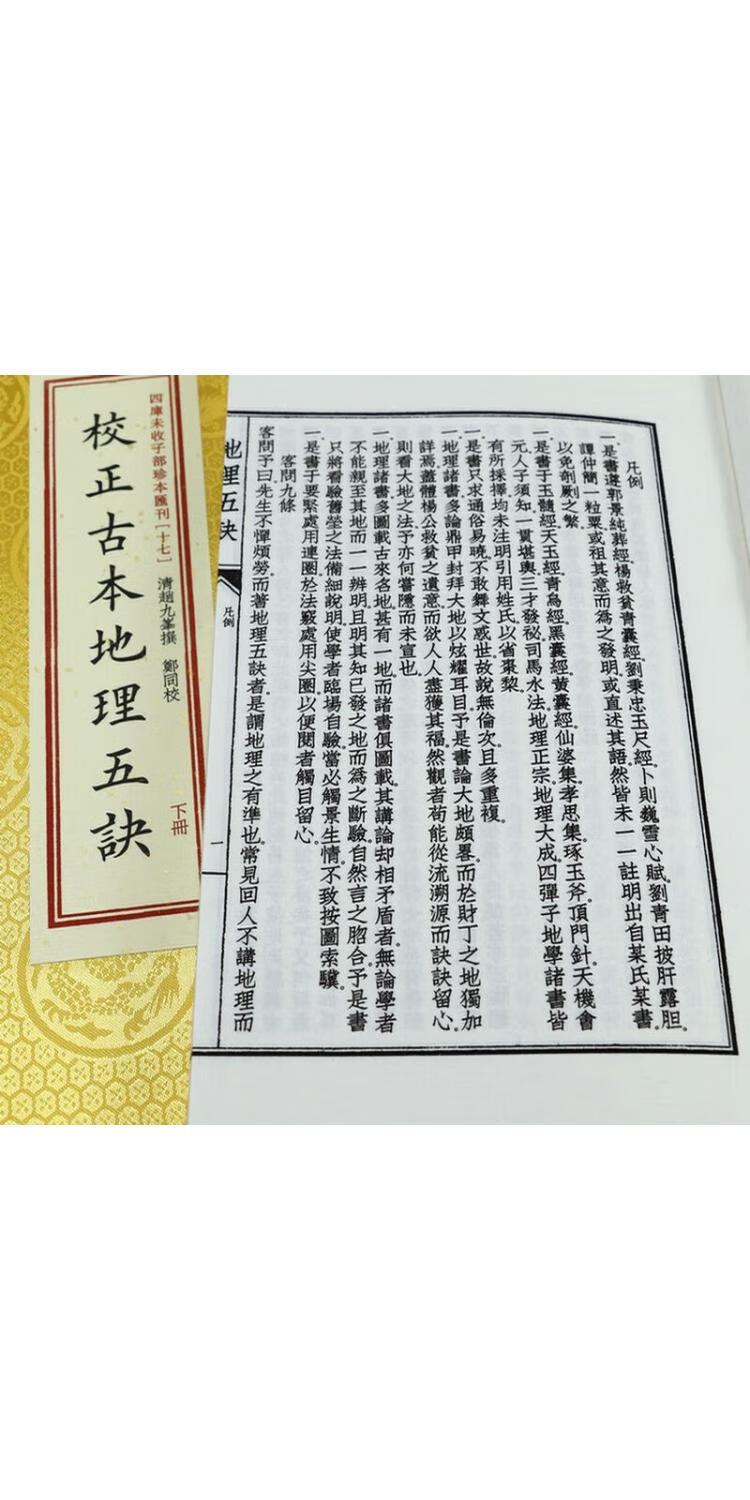 四庫未收子部珍本匯刊[十七]
清趙九峯撰 鄭同校
校正古本地理五訣
下冊
凡例
一是書遵郭景純葬經楊救貧青囊經劉秉忠玉尺經卜則巍雪心賦劉青田披肝露胆
譚仲簡一粒粟或祖其意而爲之發明或直述其語然皆未一一註明出自某氏某書
以免剞劂之繁
一是書于玉髓經天玉經青烏經黑囊經黄囊經仙婆集孝思集琢玉斧頂門針天機會
元人子須知一貫堪輿三才發祕司馬水法地理正宗地理大成四彈子地學諸書皆
有所採擇均未注明引用姓氏以省棗棃
一是書只求通俗易曉不敢舞文惑世故說無倫次且多重複
一地理諸書多論鼎甲封拜大地以炫耀耳目予是書論大地頗畧而於財丁之地獨加
詳焉蓋體楊公救貧之遺意而欲人人盡獲其福然觀者苟能從流溯源而訣訣留心
則看大地之法予亦何嘗隱而未宣也
一地理諸書多圖載古來名地甚有一地而諸書俱圖載其講論却相矛盾者無論學者
不能親至其地而一一辨明且明其知已發之地而爲之斷驗自然言之脗合予是書
只將看驗舊塋之法備細說明使學者臨場自驗當必觸景生情不致按圖索驥
一是書于要緊處用連圈於法竅處用尖圈以便閱者觸目留心
客問九條
客問予曰先生不憚煩勞而著地理五訣者是謂地理之有準也常見回人不講地理而
地理五訣
凡例
一